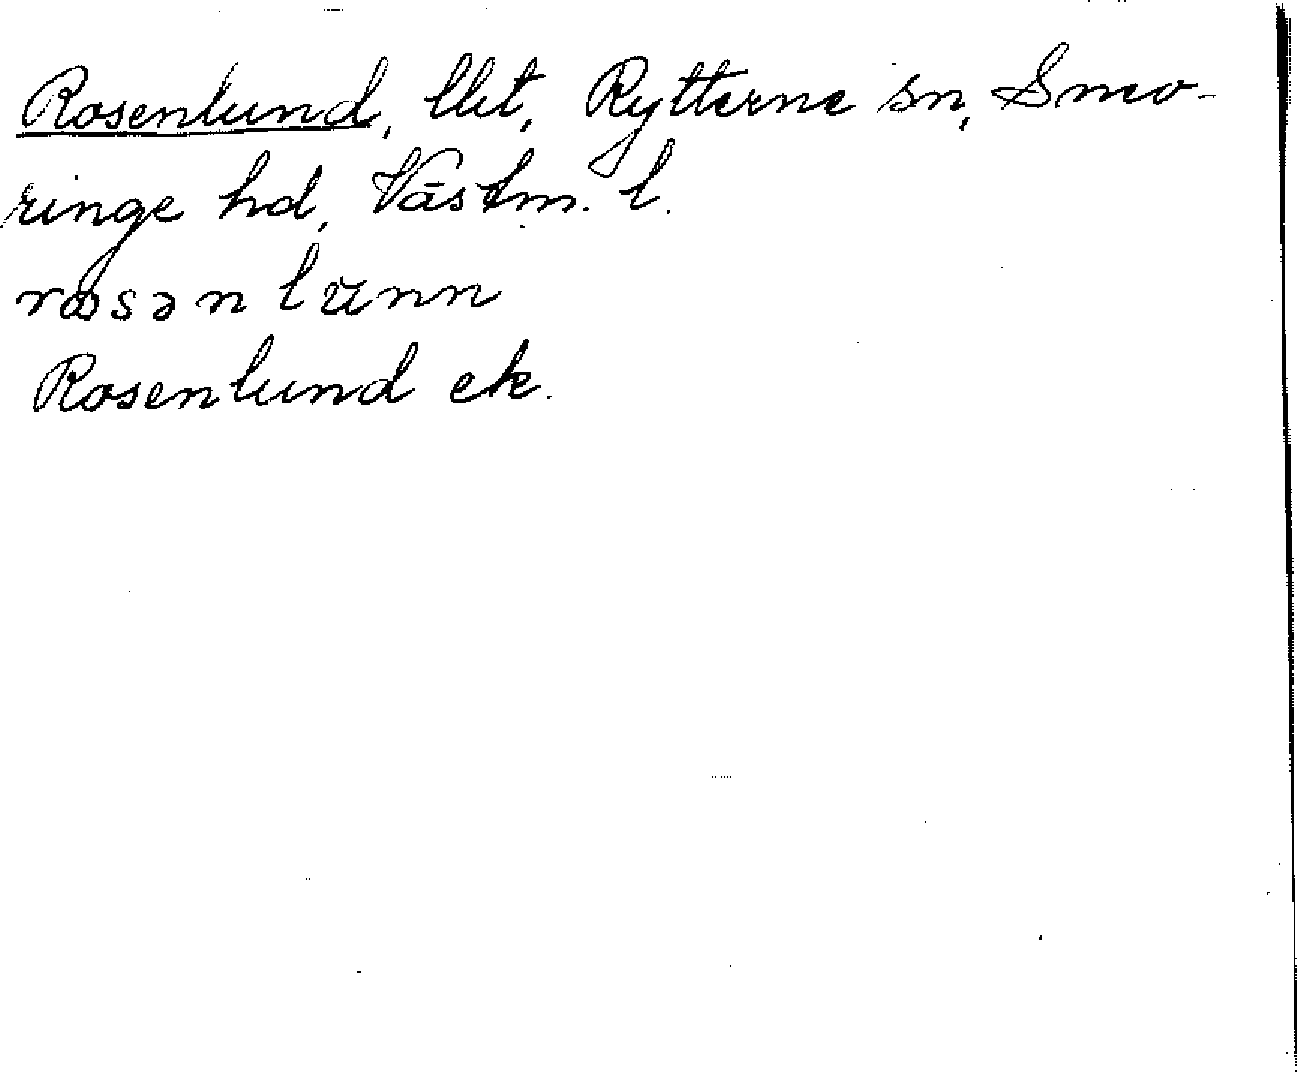 Rosenlund, llit, Rytterne sn, Snev-
ringe hd, Västm. l.
rosənlunn
Rosenlund ek.